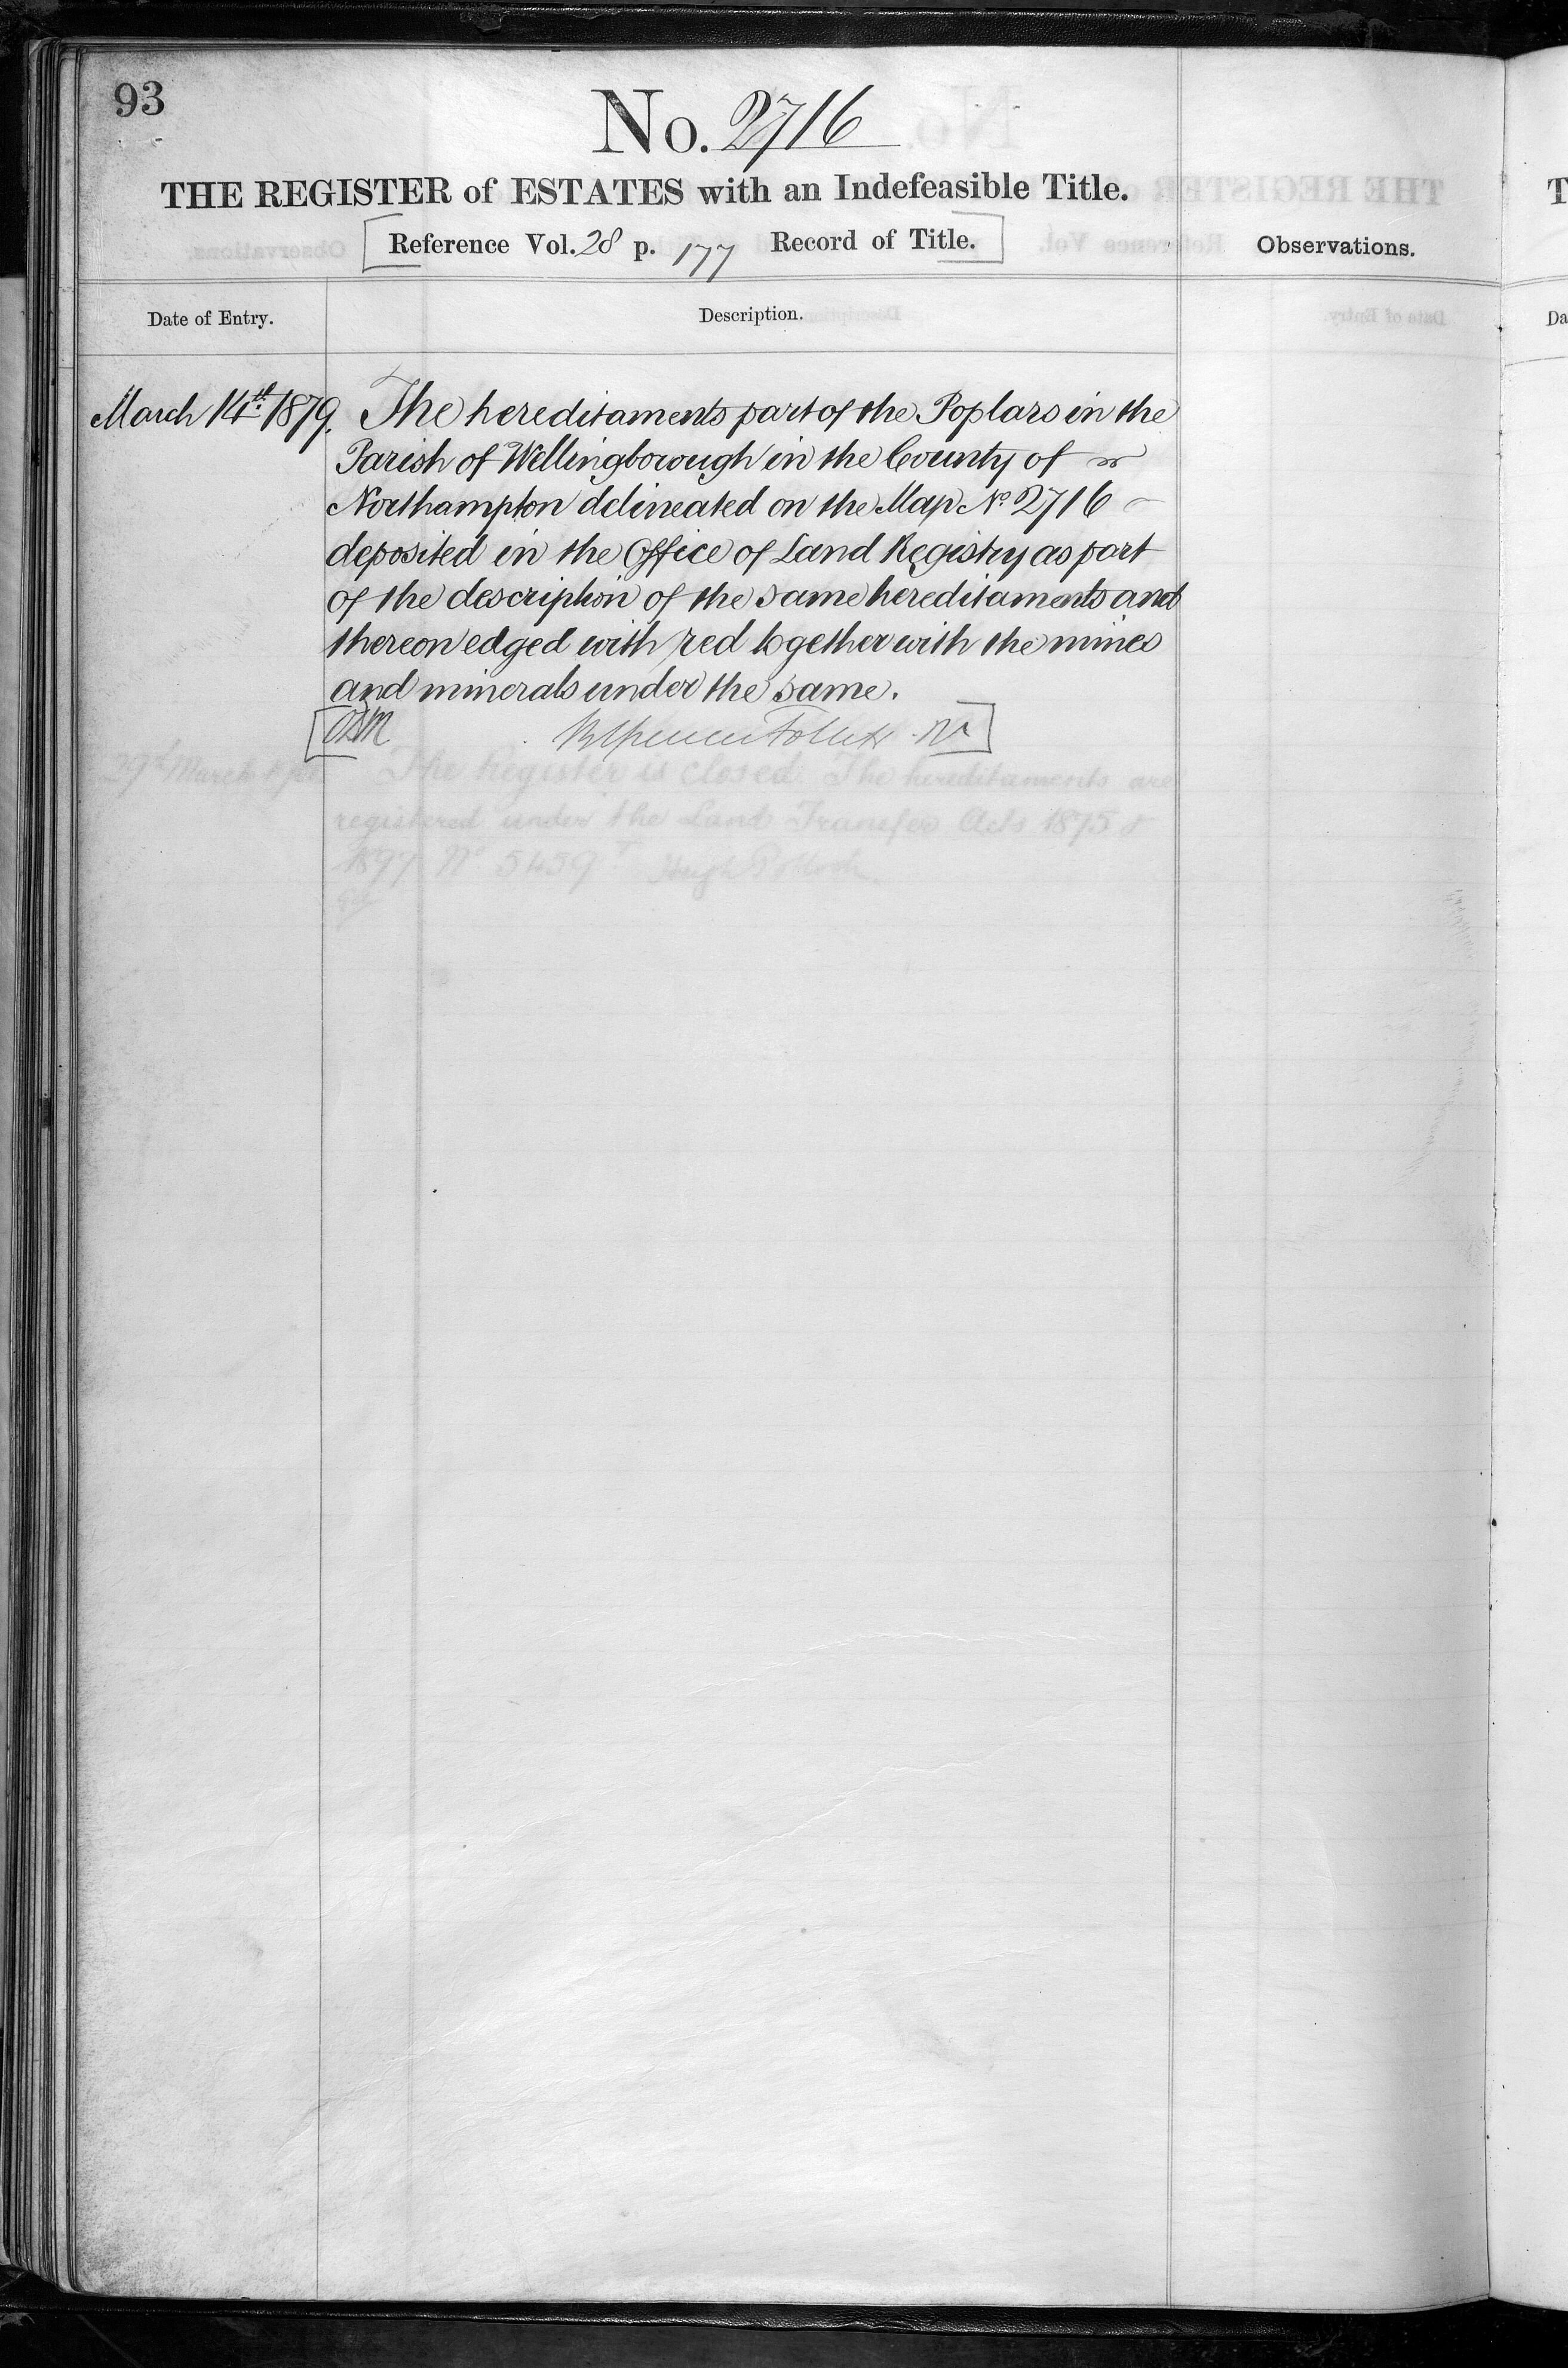 93
No. 2716
THE REGISTER of ESTATES with an Indefeasible Title.
Reference Vol. 28 p. 177 Record of Title.
Observations.
Date of Entry.
Description.
March 14th 1879. The hereditaments part of the Poplars in the
Parish of Wellingborough in the County of
Northampton delineated on the Map No. 2716
deposited in the Office of Land Registry as part
of the description of the same hereditaments and
thereon edged with red together with the mines
and minerals under the same.
Follett
29th March The Register is closed. The hereditaments are
registered under the Land Transfer Acts 1875 &
1897 No 5459 Hugh Pollock